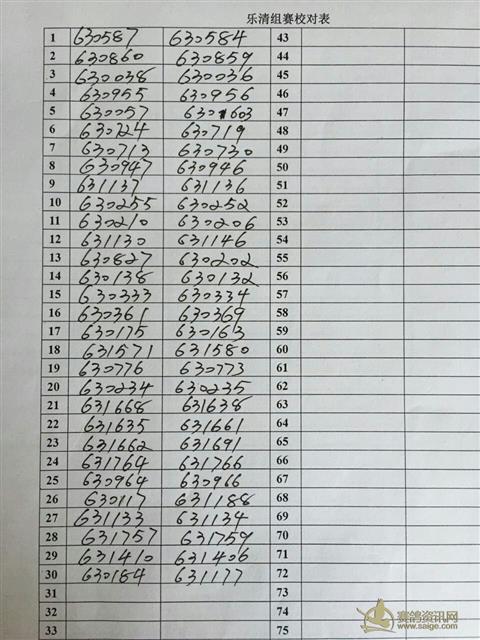 乐清组赛校对表
1 630587 630584 43
2 630860 630859 44
3 630038 630036 45
4 630955 630956 46
5 630057 630603 47
6 630724 630719 48
7 630713 630730 49
8 630947 630946 50
9 631137 631136 51
10 630255 630252 52
11 630210 630206 53
12 631130 631146 54
13 630827 630202 55
14 630138 630132 56
15 630333 630334 57
16 630361 630369 58
17 630175 630163 59
18 631571 631580 60
19 630776 630773 61
20 630234 630235 62
21 631668 631638 63
22 631635 631661 64
23 631662 631691 65
24 631764 631766 66
25 630964 630966 67
26 630117 631188 68
27 631133 631134 69
28 631757 631759 70
29 631410 631406 71
30 630184 631177 72
31 73
32 74
33 75
赛鸽资讯网
www.saige.com